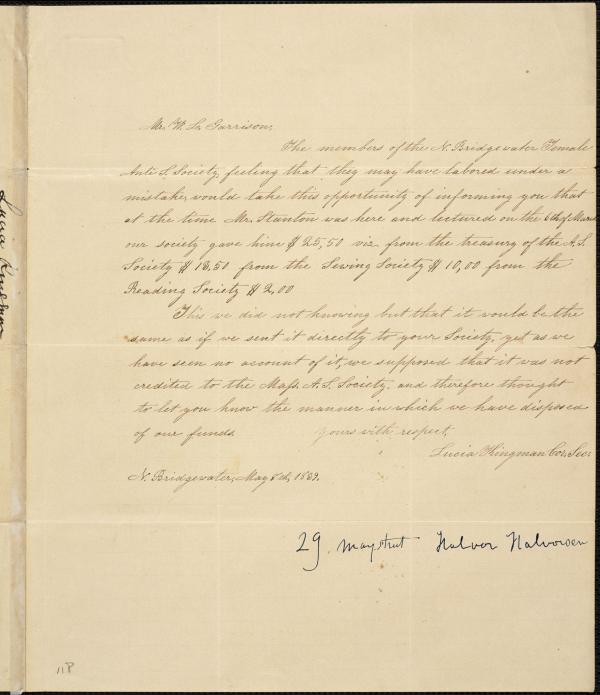 Mr. W. L. Garrison,
The members of the N. Bridgewater Female
Anti S. Society, feeling that they may have labored under a
mistake, would take this opportunity of informing you that
at the time Mr. Stanton was here and lectured on the 6th of March
our society gave him $25,50 viz. from the treasury of the A. S.
Society $13,50 from the Sewing Society $10,00 from the
Reading Society $2,00
This we did not knowing but that it would be the
same as if we sent it directly to your Society, yet as we
have seen no account of it, we supposed that it was not
credited to the Mass. A. S. Society, and therefore thought
to let you know the manner in which we have disposed
of our funds. Yours with respect,
Lucia Kingman Cor. Sec.
N. Bridgewater, May 8th, 1839.
29. May street Halvor Halvorsen
Lucia Kingman
118